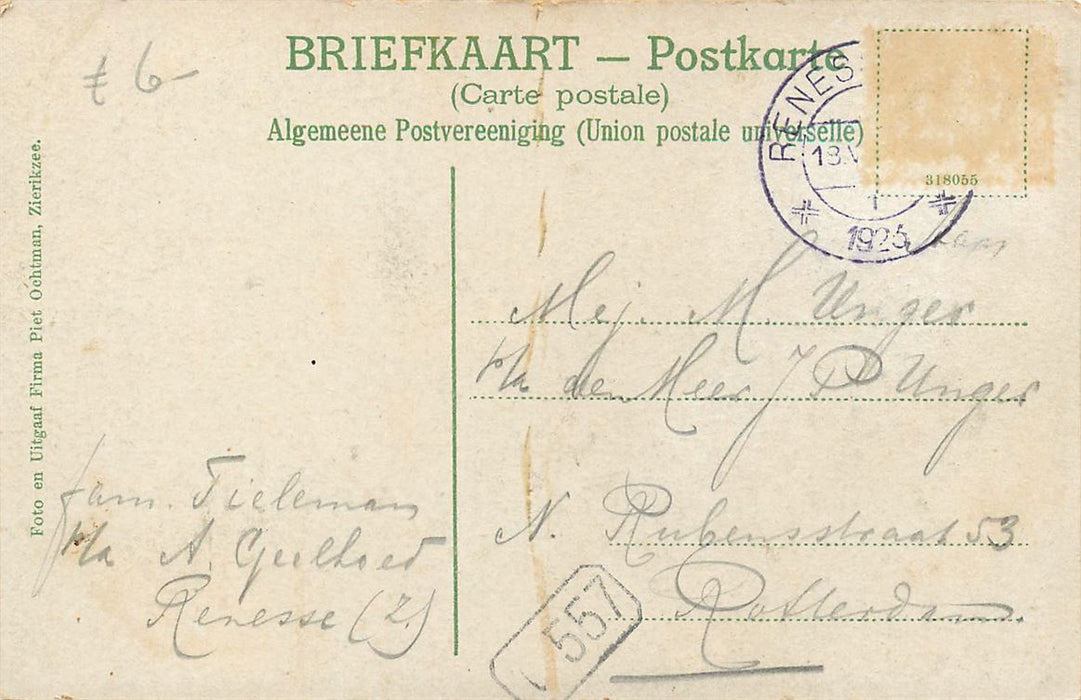 £ 6-
BRIEFKAART — Postkarte
(Carte postale)
Algemeene Postvereeniging (Union postale universelle)
RENES
18.V
1
1925
318055
Foto en Uitgaaf Firma Piet Ochtman, Zierikzee.
Mej. M. Unger
p/a den Heer J P Unger
N. Rubensstraat 53
Rotterdam.
fam. Tieleman
p/a A. Geelhoed
Renesse (Z.)
557